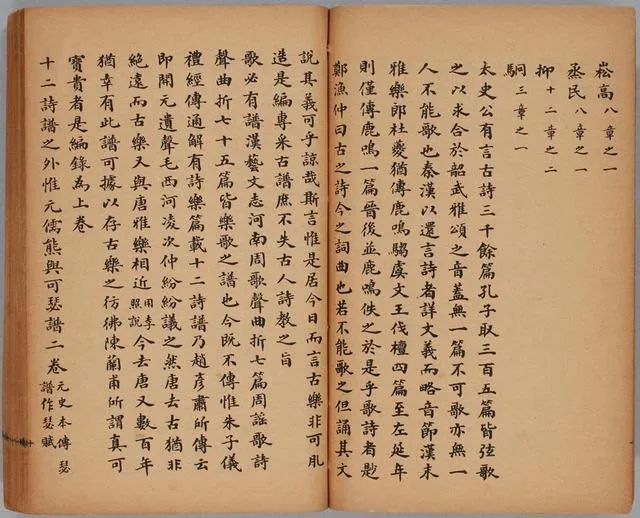 崧高八章之一
烝民八章之一
抑十二章之二
駉三章之一
太史公有言古詩三千餘篇孔子取三百五篇皆弦歌
之以求合於韶武雅頌之音蓋無一篇不可歌亦無一
人不能歌也秦漢以還言詩者詳文義而略音節漢末
雅樂郎杜夔猶傳鹿鳴騶虞文王伐檀四篇至左延年
則僅傳鹿鳴一篇晉後並鹿鳴佚之於是乎歌詩者尟
鄭漁仲曰古之詩今之詞曲也若不能歌之但誦其文
說其義可乎諒哉斯言惟是居今日而言古樂非可肊
造是編專采古譜庶不失古人詩教之旨
歌必有譜漢藝文志河南周歌聲曲折七篇周謠歌詩
聲曲折七十五篇皆樂歌之譜也今既不傳惟朱子儀
禮經傳通解有詩樂篇載十二詩譜乃趙彥肅所傳云
即開元遺聲毛西河凌次仲紛紛議之然唐去古猶非
絕遠而古樂又與唐雅樂相近用李照說今去唐又數百年
猶幸有此譜可據以存古樂之彷彿陳蘭甫所謂真可
寶貴者是編錄為上卷
十二詩譜之外惟元儒熊與可瑟譜二卷元史本傳瑟譜作瑟賦